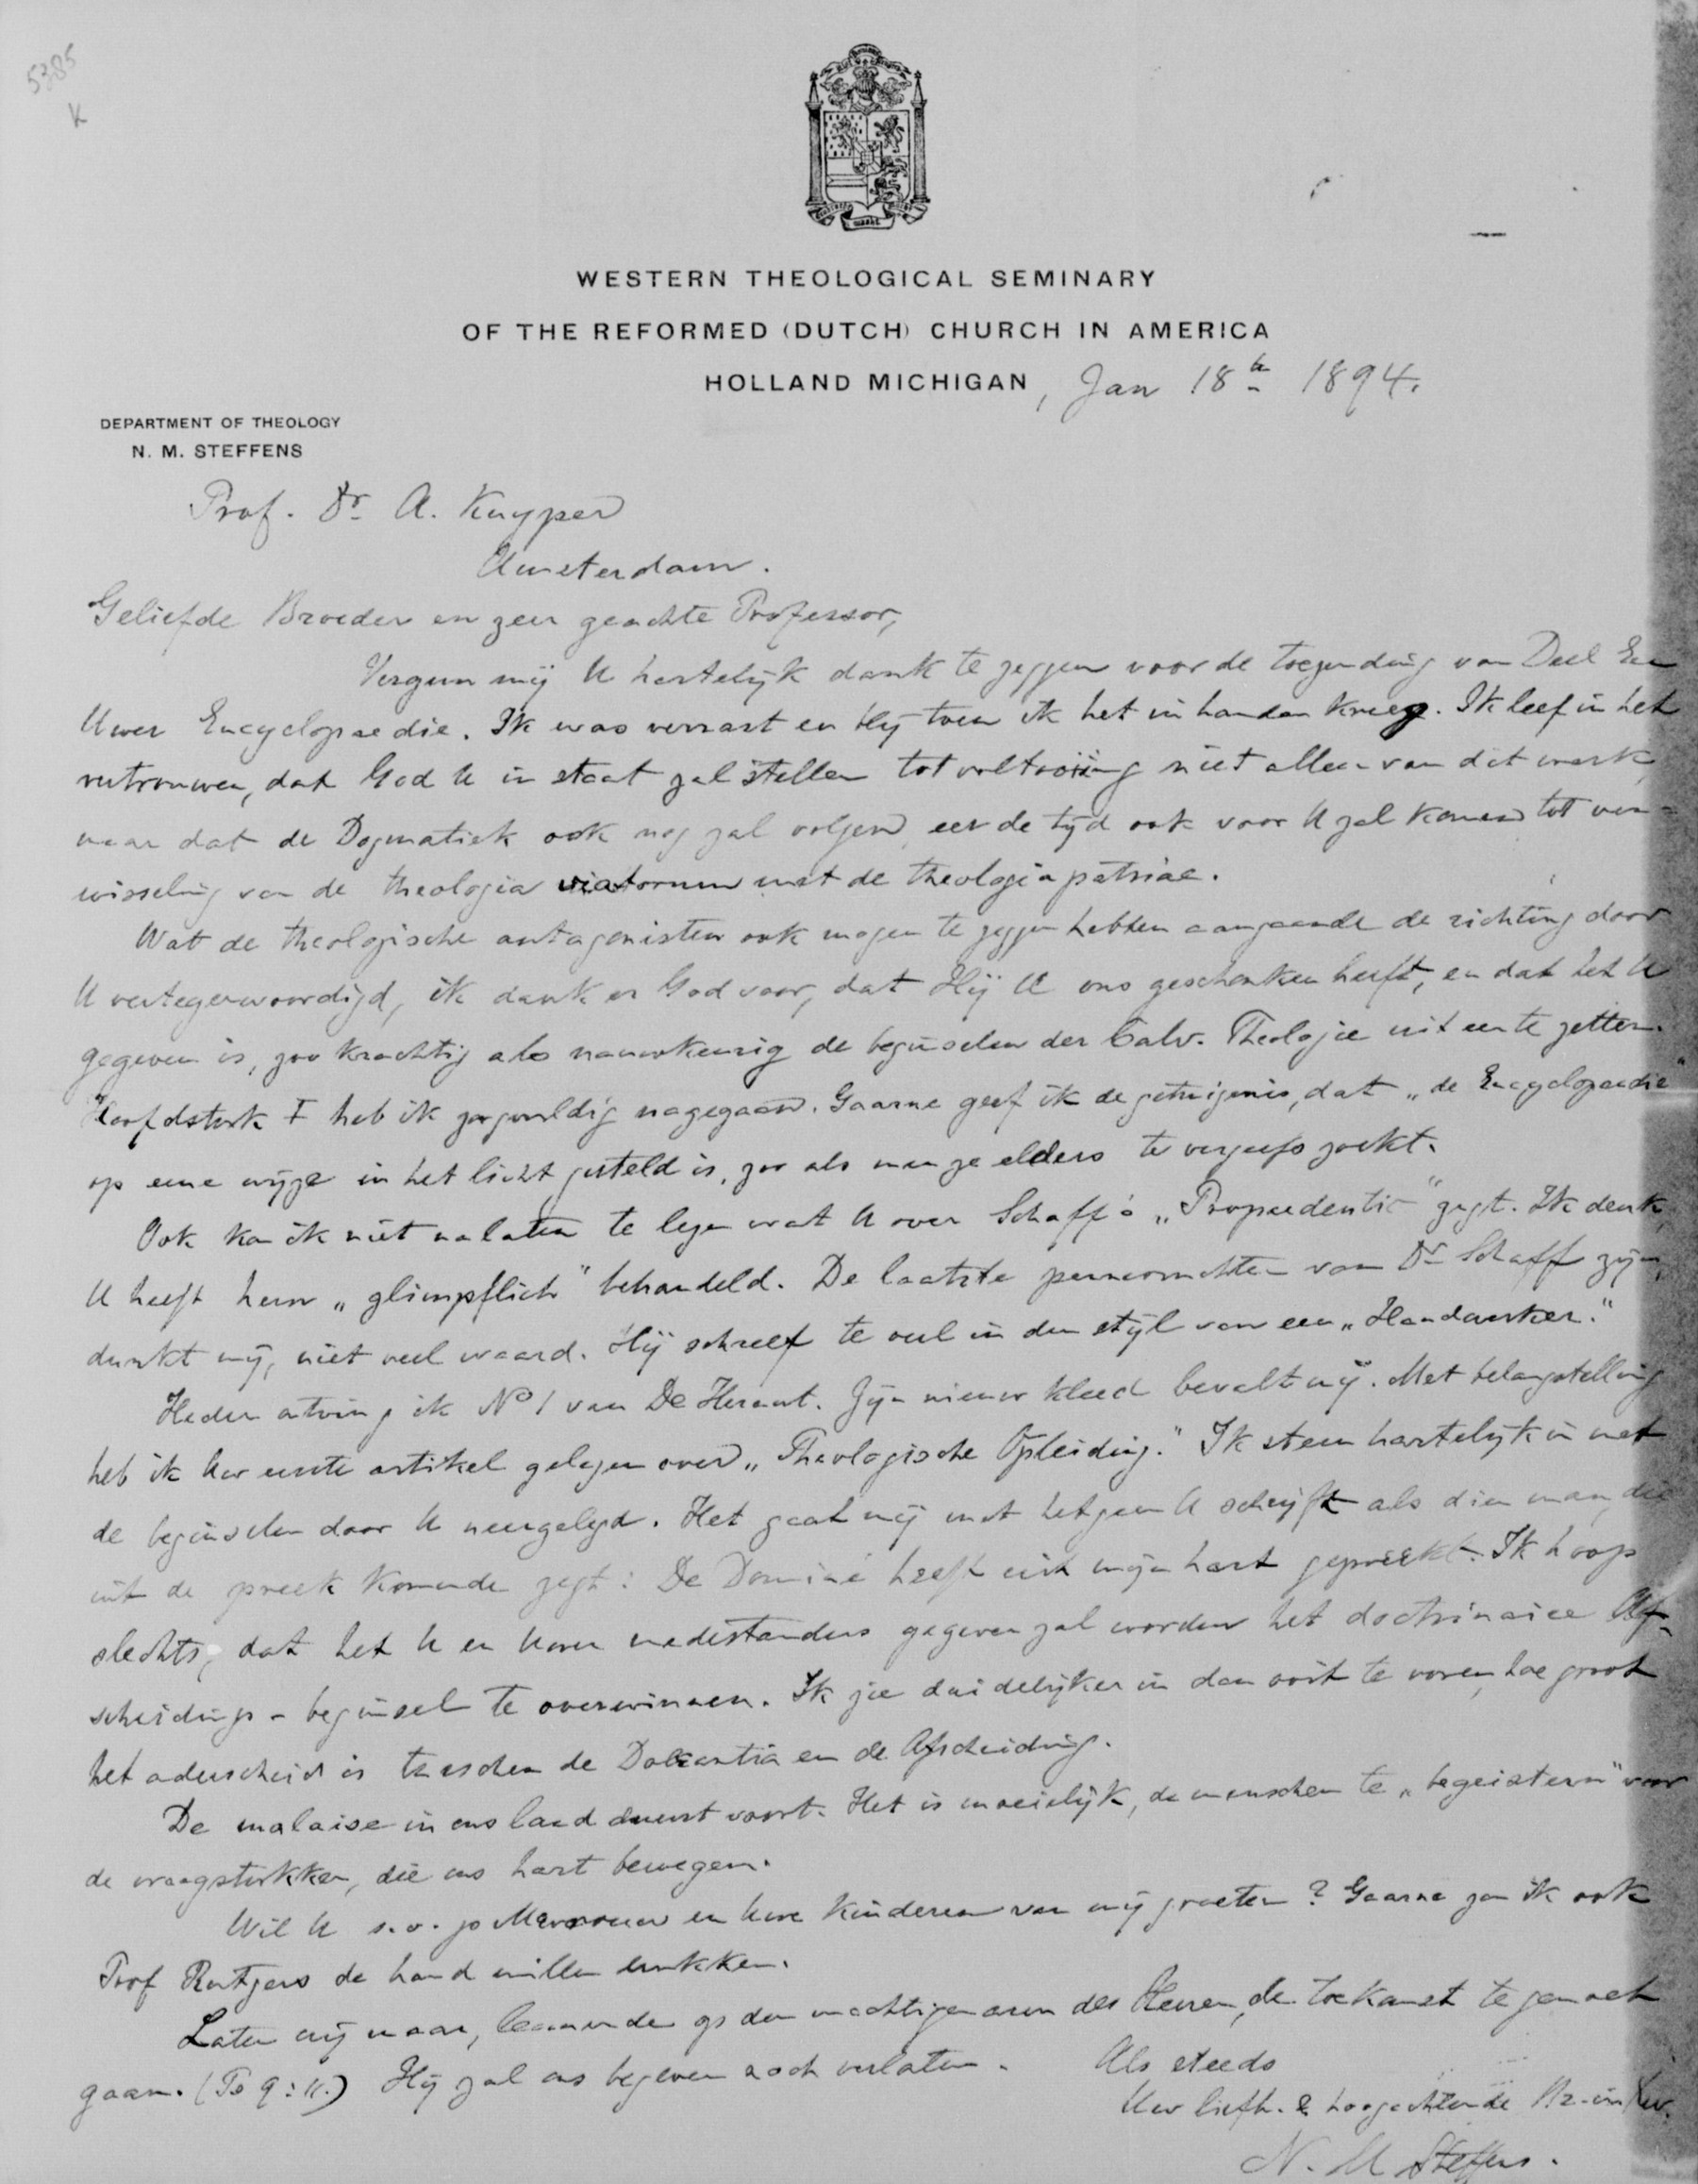 5385
K
WESTERN THEOLOGICAL SEMINARY
OF THE REFORMED (DUTCH) CHURCH IN AMERICA
HOLLAND MICHIGAN, Jan 18th 1894.
DEPARTMENT OF THEOLOGY
N. M. STEFFENS
Prof. Dr A. Kuyper
Amsterdam.
Geliefde Broeder en zeer geachte Professor,
Vergun mij U hartelijk dank te zeggen voor de toezending van Deel Een
Uwer Encyclopaedie. Ik was verrast en blij toen ik het in handen kreeg. Ik leef in het
vertrouwen, dat God U in staat zal stellen tot voltooiing niet alleen van dit werk,
maar dat de Dogmatiek ook nog zal volgen, eer de tijd ook voor U zal komen tot ver=
wisseling van de theologia viatorum met de theologia patriae.
Wat de theologische antagonisten ook mogen te zeggen hebben aangaande de richting door
U vertegenwoordigd, ik dank er God voor, dat Hij U ons geschonken heeft, en dat het U
gegeven is, zoo krachtig als nauwkeurig de beginselen der Calv. Theologie uit een te zetten.
Hoofdstuk I heb ik zorgvuldig nagegaan. Gaarne geef ik de getuigenis, dat „de Encyclopaedie"
op eene wijze in het licht gesteld is, zoo als men ze elders te vergeefs zoekt.
Ook kon ik niet nalaten te lezen wat U over Schaff's „Propaedeutic" zegt. Ik denk,
U heeft hem „glimpflich" behandeld. De laatste pennevruchten van Dr Schaff zijn,
dunkt mij, niet veel waard. Hij schreef te veel in den stijl van een „Handwerker."
Heden ontving ik No 1 van De Heraut. Zijn nieuw kleed bevalt mij. Met belangstelling
heb ik Uw eerste artikel gelezen over „Theologische Opleiding." Ik stem hartelijk in met
de beginselen door U neergelegd. Het gaat mij met hetgeen U schrijft als dien man, die
uit de preek komende zegt: De Dominé heeft uit mijn hart gepreekt. Ik hoop
slechts, dat het U en Uwen medestanders gegeven zal worden het doctrinaire Af-
scheidings-beginsel te overwinnen. Ik zie duidelijker in dan ooit te voren, hoe groot
het onderscheid is tusschen de Doleantie en de Afscheiding.
De malaise in ons land duurt voort. Het is moeielijk, de menschen te „begeistern" voor
de vraagstukken, die ons hart bewegen.
Wil U s.v.p. Mevrouw en Uwe kinderen van mij groeten? Gaarne zou ik ook
Prof Rutgers de hand willen drukken.
Laten wij maar, leunende op den machtigen arm des Heeren, de toekomst te gemoet
gaan. (Ps 9:11.) Hij zal ons begeven noch verlaten.
Als steeds
Uw liefh. & hoogachtende Br. in
N. M Steffens.